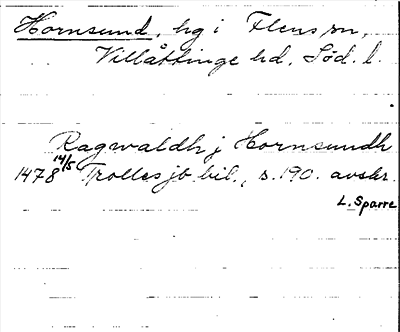 Hornsund, hg i Flens sn,
Villåttinge hd, Söd. l.
Ragwaldh j Hornsundh
1478 14/5 Trolles jb. bil., s. 190. avskr.
L. Sparre